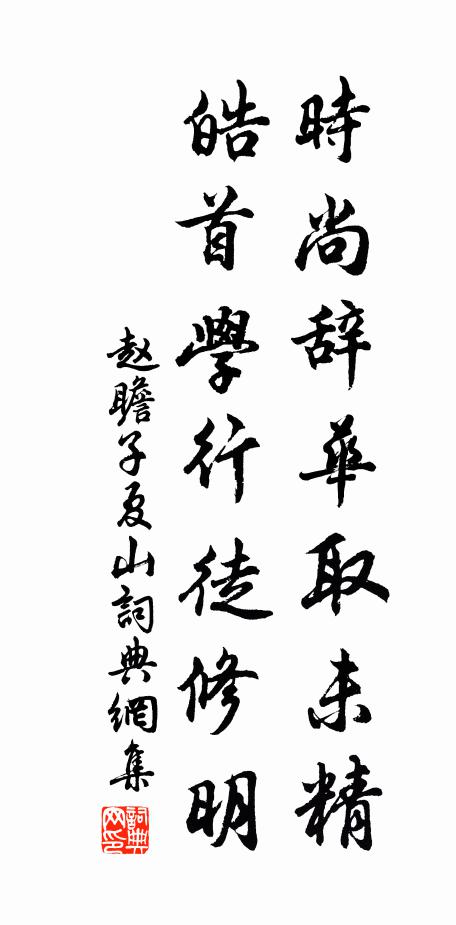 時尚辞華取未精
皓首學行徒修明
赵瞻子夏山詞典網集
詞典网印